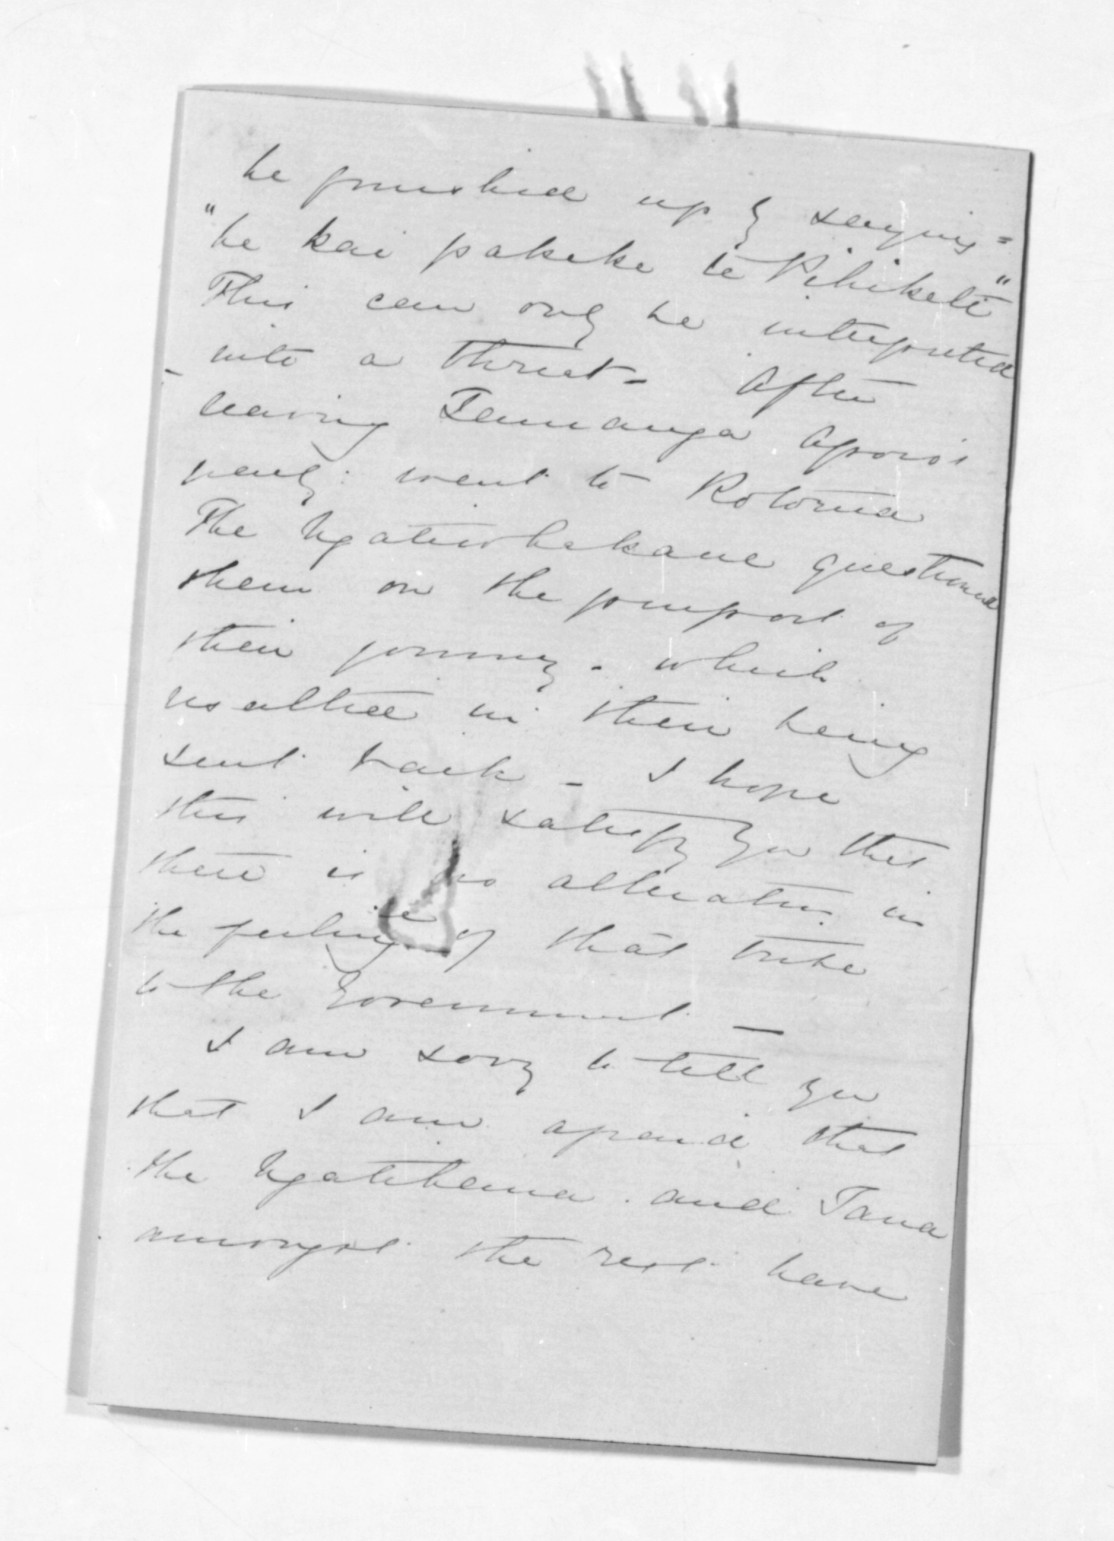 he finished up by saying =
"he kai pakeke te Pihikete"
This can only be interpreted
into a threat - After
leaving Taunanga Aporo's
party went to Rotorua
The Ngatiwhakaue questioned
them on the purport of
their journey - which
resulted in their being
sent back - I hope
this will satisfy you that
there is no alteration in
the feeling of that tribe
to the Government -
I am sorry to tell you
that I am afraid that
the Ngatihaua and Tana
amongst the rest have